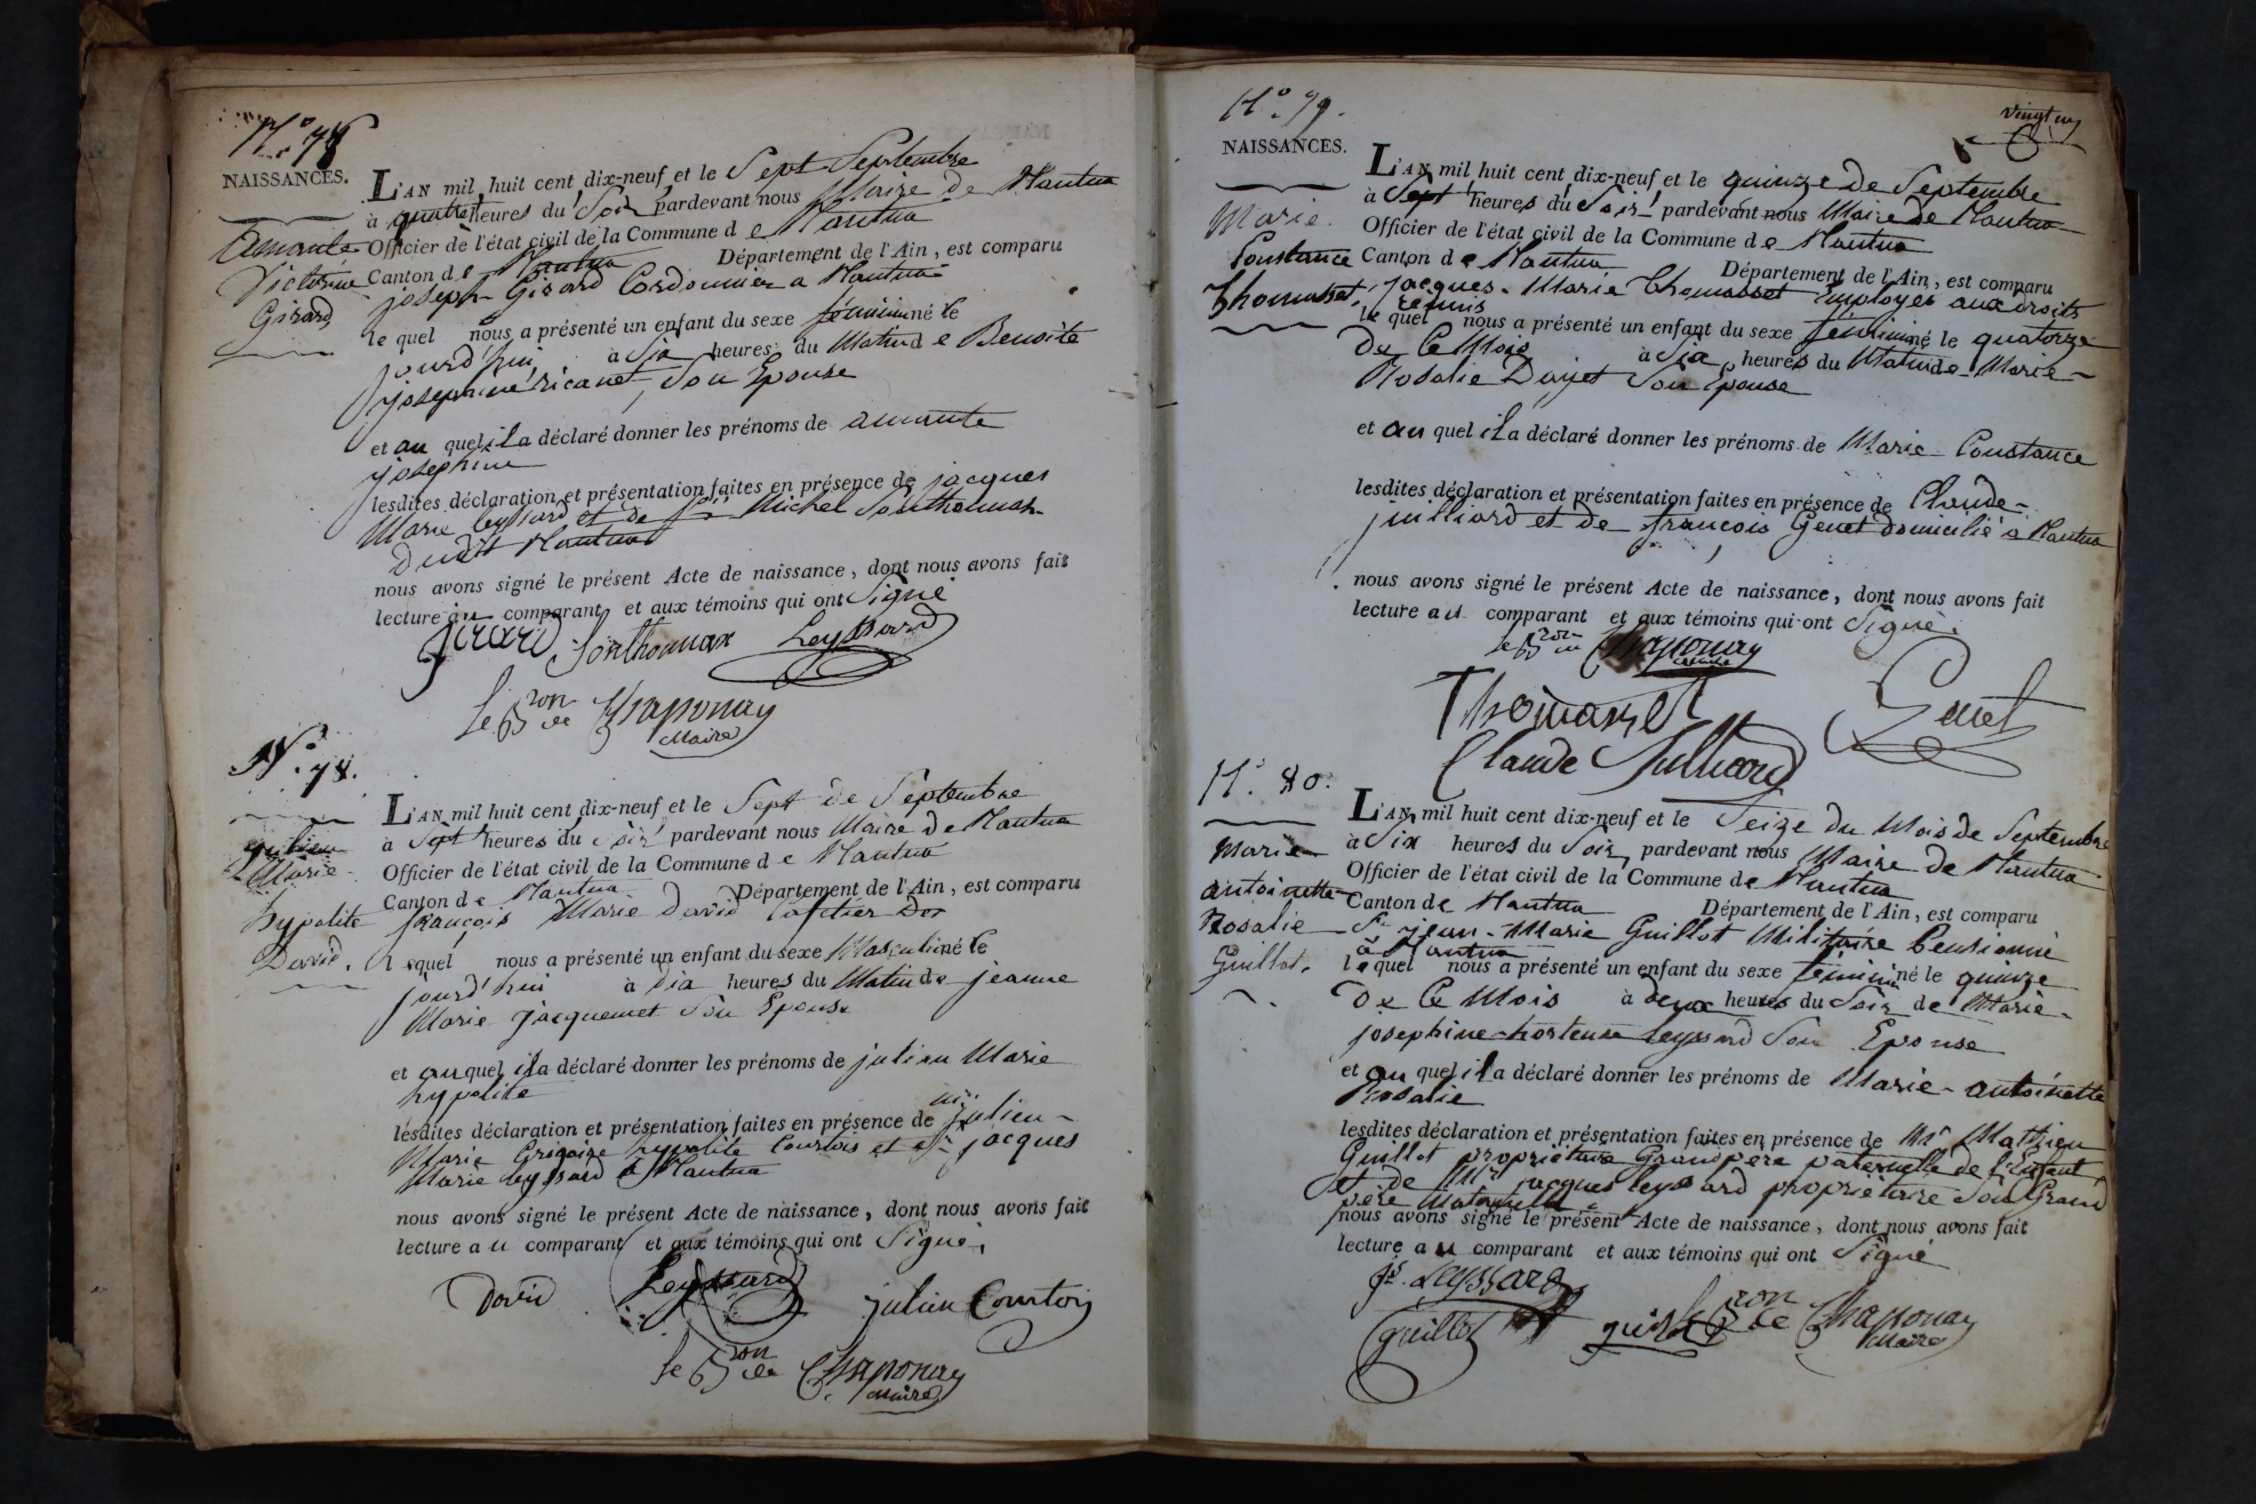 N.° 78
NAISSANCES.
L'AN mil huit cent dix-neuf et le Sept Septembre
à quatre heures du Soir pardevant nous Maire de Nantua
Officier de l'état civil de la Commune de Nantua
Canton de Nantua Département de l'Ain, est comparu
joseph Girard Cordonnier a Nantua
Victorine
Girard
le quel nous a présenté un enfant du sexe féminin né le
jourd'hui à Six heures du Matin de Benoite
josephine ricanet Son Epouse
et au quel il a déclaré donner les prénoms de amante
josephine
lesdites déclaration et présentation faites en présence de jacques
Marie leyssard et de Michel Sonthonnax
dudit Nantua
nous avons signé le présent Acte de naissance, dont nous avons fait
lecture au comparant et aux témoins qui ont Signé
girard Sonthonnax Leyssard
le Bon de Chaponay
Maire
N.° 78.
julien
Marie
hypolite
David.
L'AN mil huit cent dix-neuf et le Sept de Septembre
à Sept heures du Soir pardevant nous Maire de Nantua
Officier de l'état civil de la Commune de Nantua
Canton de Nantua Département de l'Ain, est comparu
françois Marie David Cafetier
lequel nous a présenté un enfant du sexe Masculin né le
jourd'hui à Dix heures du Matin de jeanne
Marie jacquemet Son Epouse
et auquel il a déclaré donner les prénoms de julien Marie
hypolite
lesdites déclaration et présentation faites en présence de julien
Marie Grégoire hypolite Courtois et jacques
Marie leyssard a Nantua
nous avons signé le présent Acte de naissance, dont nous avons fait
lecture au comparant et aux témoins qui ont Signé.
David Leyssard julien Courtois
le Bon de Chaponay
Maire
N.° 79.
NAISSANCES.
Marie
Constance
Thomasset
L'AN mil huit cent dix-neuf et le quinze de Septembre
à Sept heures du Soir pardevant nous Maire de Nantua
Officier de l'état civil de la Commune de Nantua
Canton de Nantua Département de l'Ain, est comparu
jacques Marie Thomasset Employés aux droits
réunis
le quel nous a présenté un enfant du sexe féminin né le quatorze
de Ce Mois à Six heures du Matin de Marie
Rosalie Dayet Son Epouse
et au quel il a déclaré donner les prénoms de Marie Constance
lesdites déclaration et présentation faites en présence de Claude
juilliard et de françois Genet domicilié à Nantua
nous avons signé le présent Acte de naissance, dont nous avons fait
lecture au comparant et aux témoins qui ont Signé.
le Bon de Chaponay
Maire
Thomasset Genet
Claude Julliard
N.° 80.
Marie
antoinette
Rosalie
Guillot.
L'AN mil huit cent dix-neuf et le Seize du Mois de Septembre
à Six heures du Soir pardevant nous Maire de Nantua
Officier de l'état civil de la Commune de Nantua
Canton de Nantua Département de l'Ain, est comparu
Sr jean-Marie Guillot Militaire Pensionné
à Nantua
le quel nous a présenté un enfant du sexe féminin né le quinze
de Ce Mois à deux heures du Soir de Marie
josephine hortense leyssard Son Epouse
et au quel il a déclaré donner les prénoms de Marie-antoinette
Rosalie
lesdites déclaration et présentation faites en présence de Mr Mathieu
Guillot propriétaire Grand père paternelle de l'Enfant
et de Mr jacques leyssard propriétaire Son Grand
père Maternelle
nous avons signé le présent Acte de naissance, dont nous avons fait
lecture au comparant et aux témoins qui ont Signé
Js. Leyssard
guillot le Bon de Chaponay
Maire